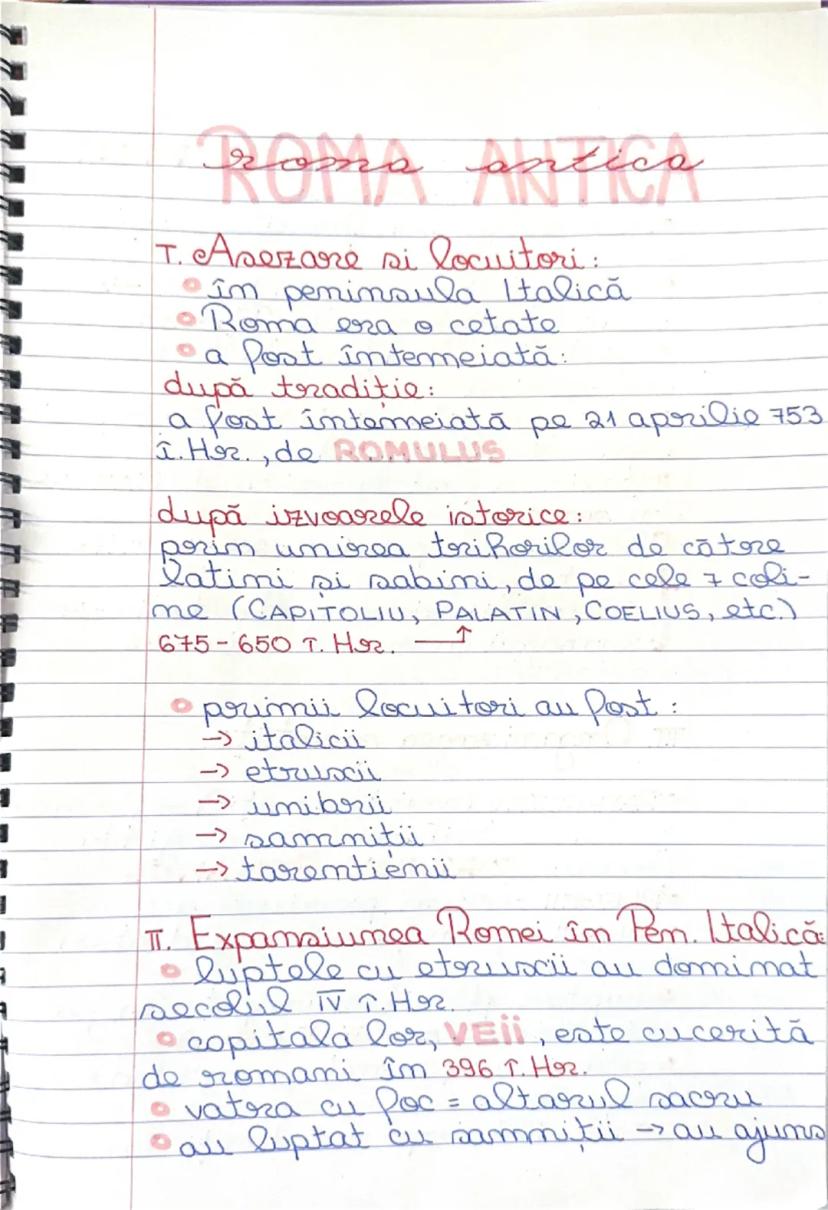 ROMA ANTICA
roma antica
I. Asezare si locuitori:
în peninsula Italică
Roma era o cetate
a fost întemeiată:
după tradiție:
a fost întemeiată pe 21 aprilie 753
î.Hr., de ROMULUS
după izvoarele istorice:
prin unirea triburilor de către
latini si sabini, de pe cele 7 coli-
ne (CAPITOLIU, PALATIN, COELIUS, etc.)
675-650 î.Hr. →
primii locuitori au fost:
→ italicii
→ etruscii
→ umbrii
→ samniții
→ tarentienii
II. Expansiunea Romei în Pen. Italică:
luptele cu etruscii au dominat
secolul IV î.Hr.
capitala lor, VEii, este cucerită
de romani în 396 î.Hr.
vatra cu foc = altarul sacru
au luptat cu samniții → au ajuns